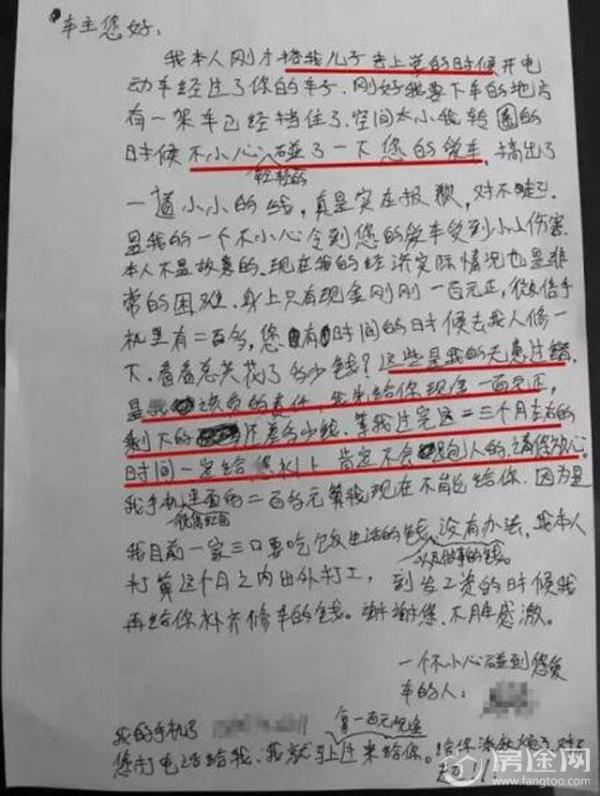 车主您好:
我本人刚才搭我儿子去上学的时候开电
动车经过了你的车子.刚好我要下车的地方
有一架车已经挡住了.空间太小我转圈的
时候不小心碰了一下您的爱车.搞出了
轻轻的
一道小小的线,真是实在抱歉,对不起.
是我的一个不小心令到您的爱车受到小小伤害.
本人不是故意的.现在我的经济实际情况也是非
常的困难.身上只有现金刚刚一百元正,微信手
机里有二百多,您有时间的日时候去找人修一
下.看看总共花了多少钱?这些是我的无意过错.
是我该负的责任,我先给你现金一百元正,
剩下的还差多少钱.等我过完这二三个月左右的
时间一定给您补上肯定不会跑人的.请您放心
我手机里面的二百多元算我现在不能给你.因为是
微信红包
我目前一家三口要吃饭生活的钱.没有办法,我本人
以及做事的钱。
打算这个月之内出外打工,到发工资的时候我
再给你补齐修车的钱。谢谢您.不胜感激。
一个不小心碰到您爱
车的人:
我的手机了
拿一百元现金
您打电话给我.我就马上过来给你.给你添麻烦了.对不
起!!!
房途网
www.fangtoo.com